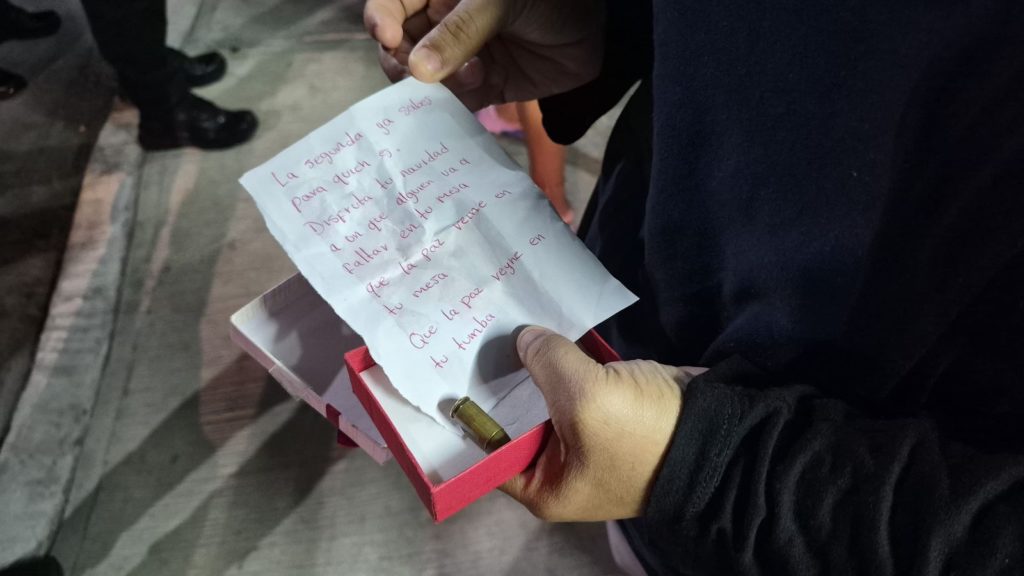 La segunda ya sabes
para quien s.
Disfruta tu navidad
a un que alguien va a
faltar en tu mesa
que la paz veyne en
tu mesa
Que la paz veyne en
tu tumba